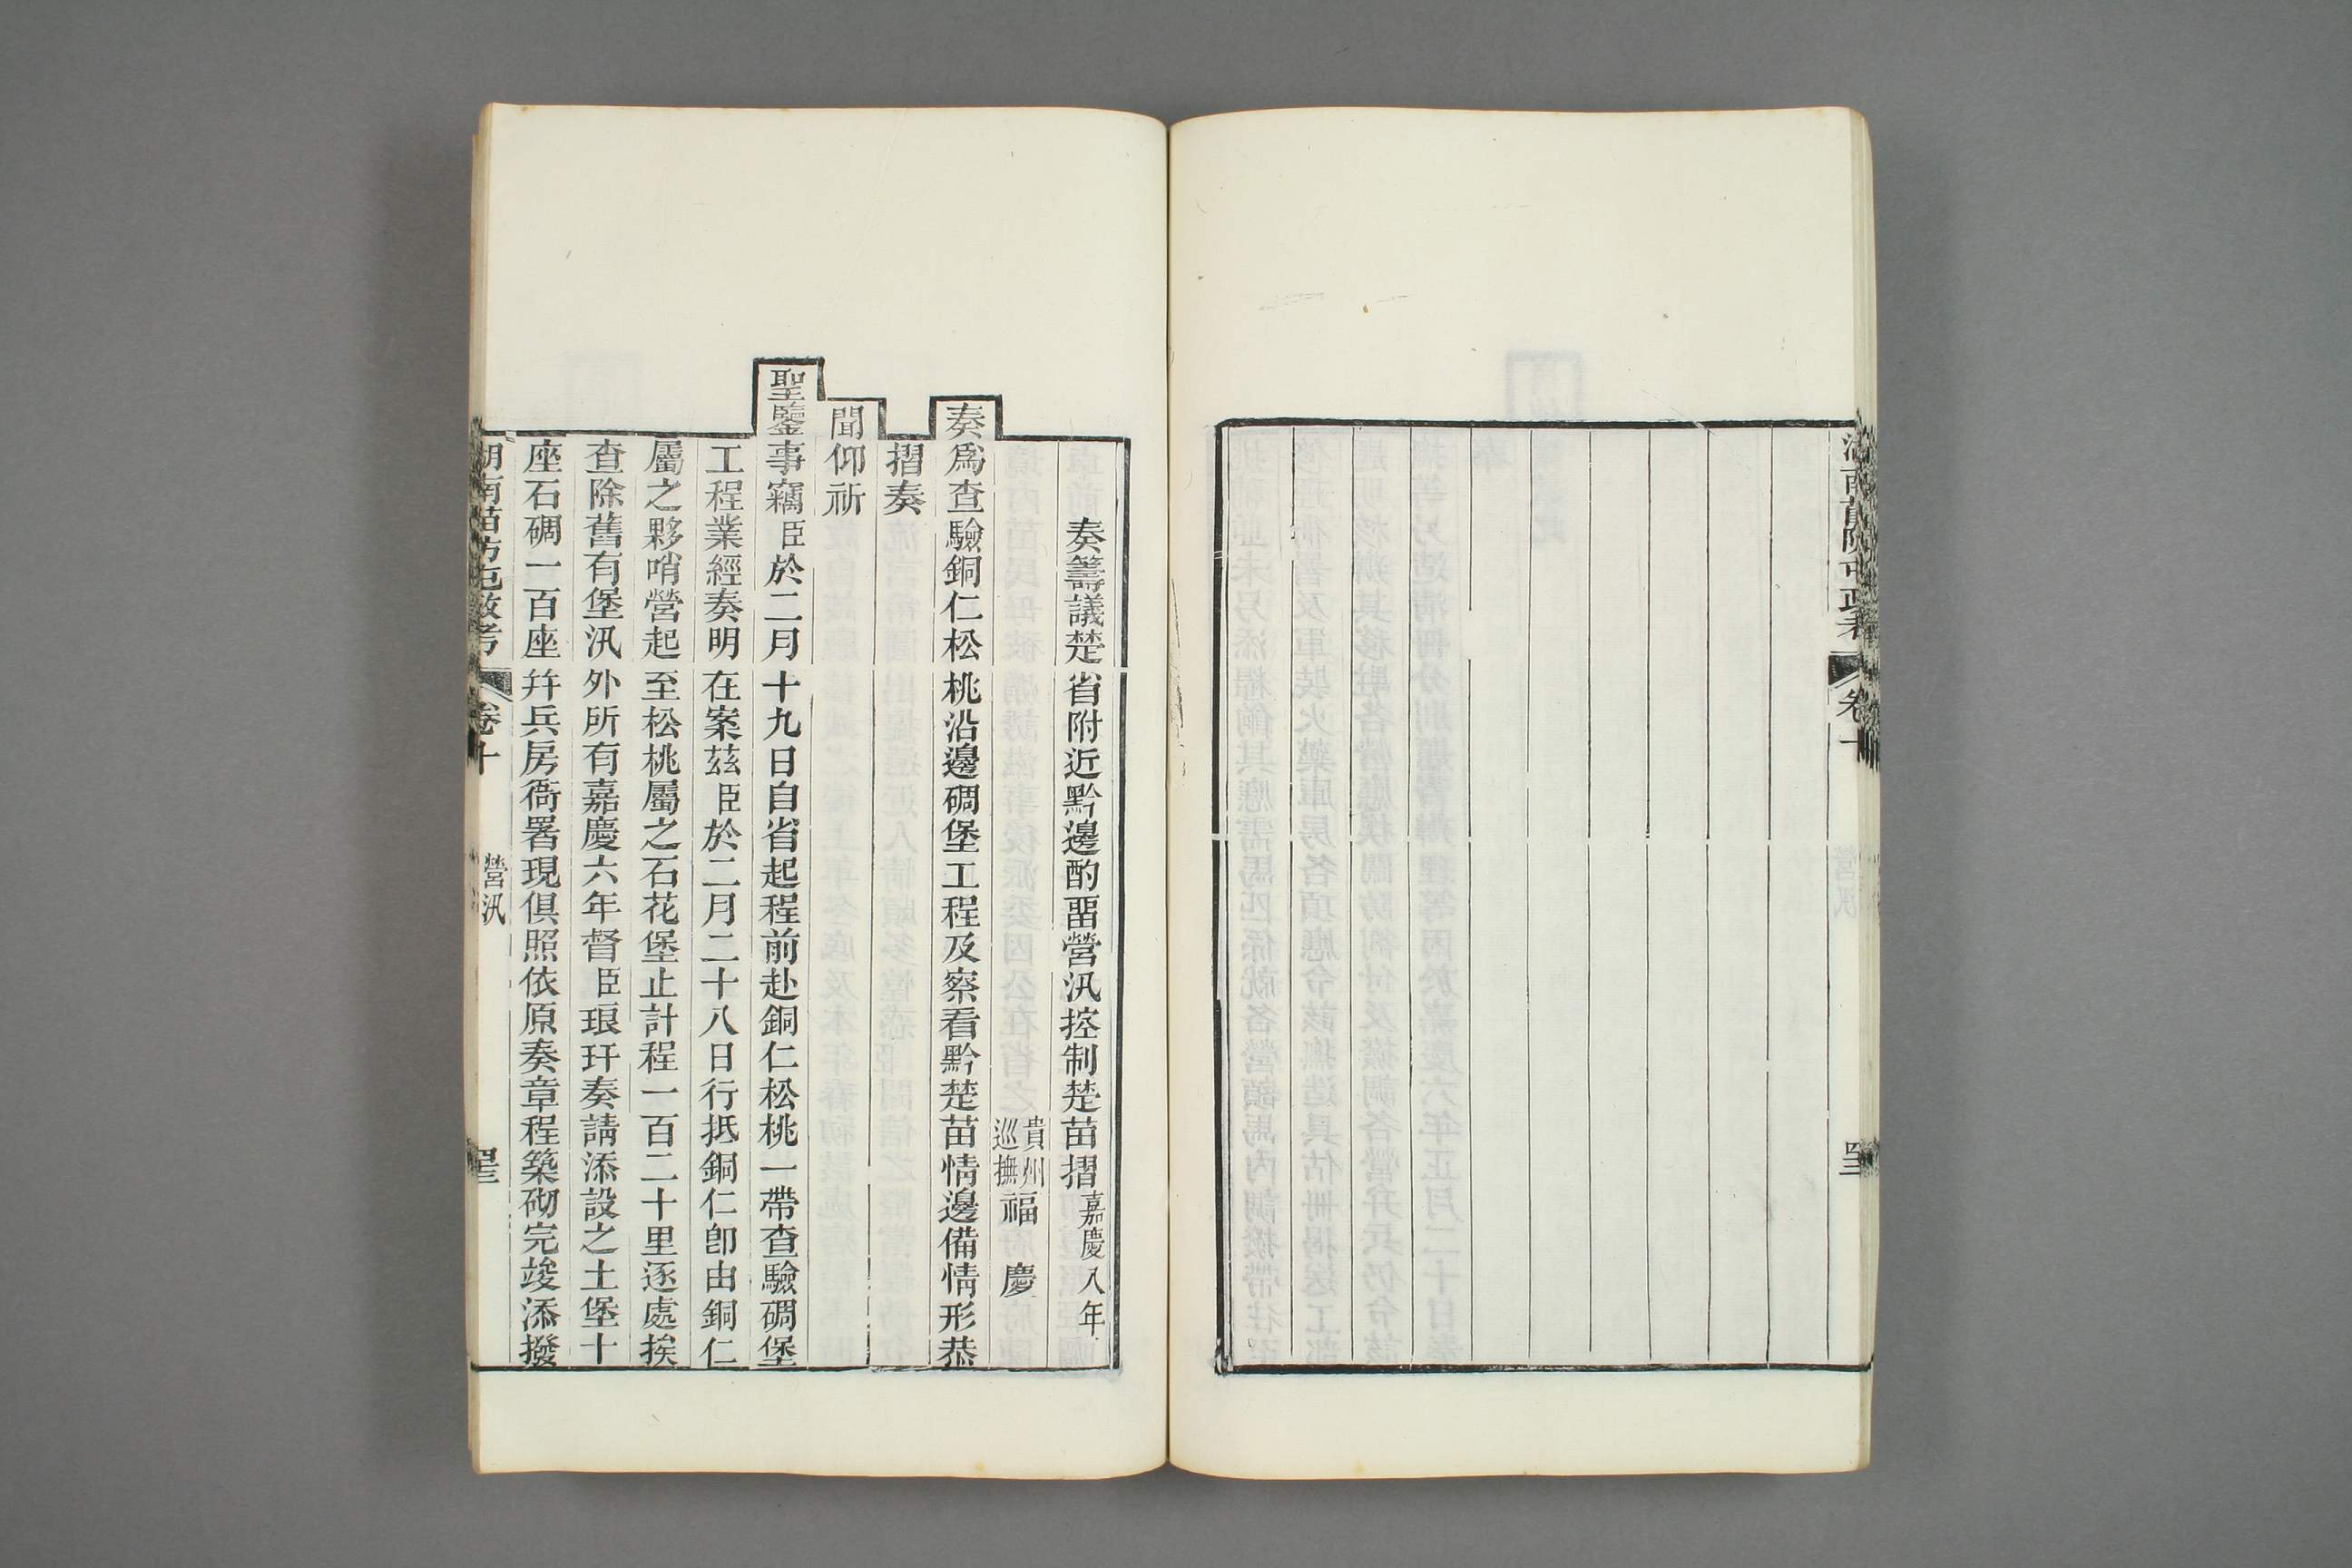 奏籌議楚省附近黔邊酌畱營汛控制楚苗摺嘉慶八年
貴州巡撫福慶
奏爲查驗銅仁松桃沿邊碉堡工程及察看黔楚苗情邊備情形恭
摺奏
聞仰祈
聖鑒事竊臣於二月十九日自省起程前赴銅仁松桃一帶查驗碉堡
工程業經奏明在案茲臣於二月二十八日行抵銅仁卽由銅仁
屬之夥哨營起至松桃屬之石花堡止計程一百二十里逐處挨
查除舊有堡汛外所有嘉慶六年督臣琅玕奏請添設之土堡十
座石碉一百座幷兵房衙署現俱照依原奏章程築砌完竣添撥
湖南苗防屯政考 卷十 營汛